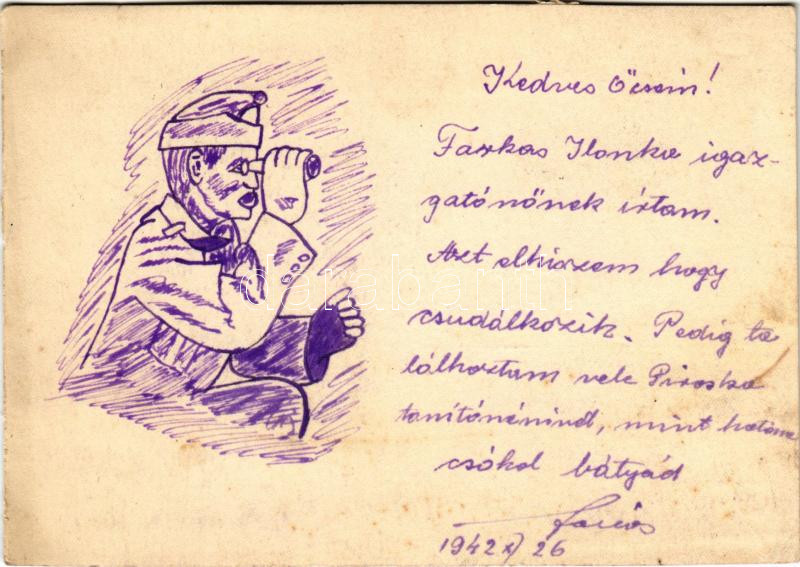 Kedves Öcsém!
Farkas Ilonka igaz-
gatónőnek írtam.
Azt elhiszem hogy
csudálkozik. Pedig ta
lálkoztam vele Piroska
tanítónéninél, mint
csókol bátyád
1942 X/ 26
darabanth